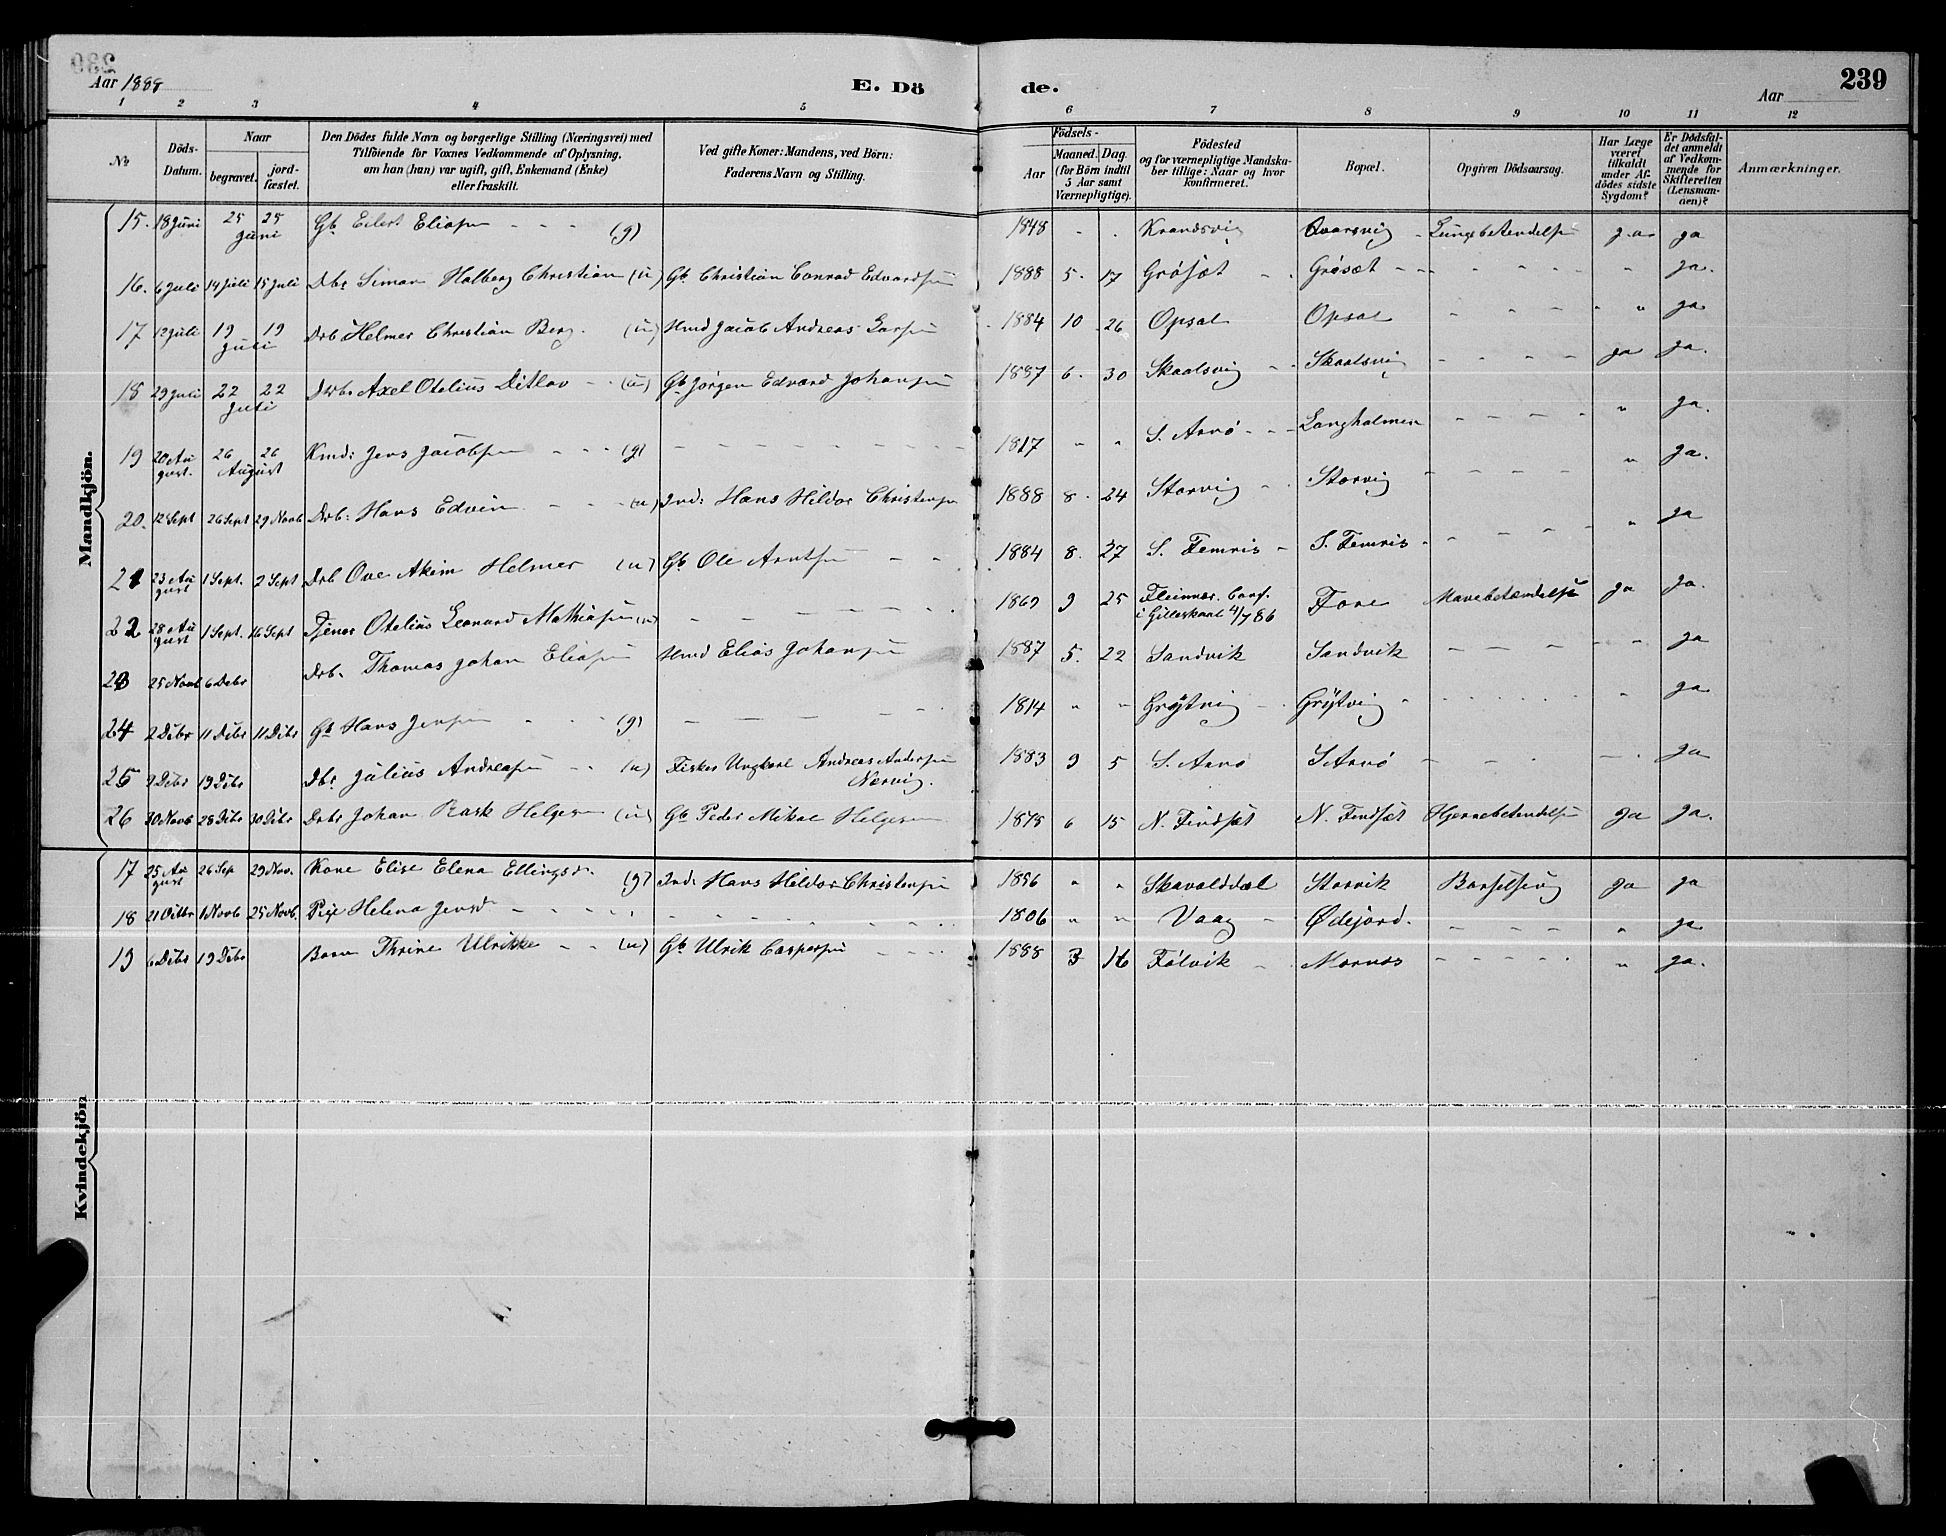 239
Aar 1888 E. Dö de. Aar 239
1 2 3 4 5 6 7 8 9 10 11 12
No
Döds-Datum.
Naar
begravet. jord-fæstet.
Den Dödes fulde Navn og borgerlige Stilling (Næringsvei) med
Tilföiende for Voxnes Vedkommende af Oplysning,
om han (hun) var ugift, gift, Enkemand (Enke)
eller fraskilt.
Ved gifte Koner: Mandens, ved Börn:
Faderens Navn og Stilling.
Födsels-
Aar Maaned. Dag
(for Börn indtil
5 Aar samt
Værnepligtige).
Födested
og for værnepligtige Mandska-
ber tillige: Naar og hvor
konfirmeret.
Bopæl.
Opgiven Dödsaarsag.
Har Læge
været
tilkaldt
under Af-
dödes sidste
Sygdom?
Er Dödsfal-
det anmeldt
af Vedkom-
mende for
Skifteretten
(Lensman-
den)?
Anmærkninger.
Mandkjön.
15. 18 Juni 25 25 Juni Gb. Eilert Eliasen - - - (g) 1848 " " Qvarsvig Lungebetendelse ja ja
16. 6 Juli 14 Juli 15 Juli Dbr. Simon Halberg Christian (u) Gb. Christian Conrad Edvardsen 1888 5 17 Grösæt Grösæt " ja.
17 12 Juli 19 19 Juli Drb Helmer Christian Berg (u) Hmd Jacob Andreas Larsen 1884 10 26 Opsal Opsal " ja
18 29 Juli 22 22 Juli Drb. Axel Otelius Ditlev (u) Gb. Jørgen Edvard Johansen 1887 6 30 Skaalsvig Skaalsvig ja ja.
19 20 August. 26 26 August Kmd: Jens Jacobsen (g) 1817 " " S. Arnö Langholmen " ja.
20. 12 Sept 26 Sept 29 Novb Drb: Hans Edvin (u) Ind: Hans Hildor Christensen 1888 8 24 Storvig Storvig " ja.
21 23 August 1 Sept. 2 Sept Drb Ove Akim Helmer (u) Gb Ole Arntsen 1884 8. 27 S. Femris S. Femris " ja
22 28 August 1 Sept. 16 Sept Tjener Otelius Leonard Mathiasen (u) 1869 9 25 Fleinvær. Conf. i Gilleskaal 4/7 86 Fore Mavebetendelse ja ja.
23 25 Novb 6 Debr Drb. Thomas Johan Eliasen Hmd Elias Johansen 1887 5. 22 Sandvik Sandvik " ja
24 2 Debr 11 Debr 11 Debr Gb Hans Jensen (g) 1814 " " Grÿtvig Grÿtvig " ja
25 9 Debr 19 Debr Dbr. Julius Andreasen (u) Fisker Ungkarl Andreas Andersen
Nærvig. 1883 9 5 S. Arnö S Arnö ja
26 30 Novb 28 Debr 30 Debr Drbr Johan Rask Helgesen (u) Gb Peder Mikal Helgesen 1878 6 15 N. Findsæt N. Findsæt Hjernebetendelse ja ja.
Kvindekjön
17 25 August 26 Sep 29 Nov. Kone Elise Elena Ellingsd. (g) Ind: Hans Hildor Christensen 1856 " " Skavolddal Storvik Barselseng ja ja
18 21 Octbr 1 Novb 25 Novb. Helena Jensd 1806 " " Vaag Ødejord. " ja
19 6 Debr 19 Debr Barn Thrine Ulrikke (u) Gb Ulrik Caspersen 1888 3 16 Følvik Mornæs " ja.